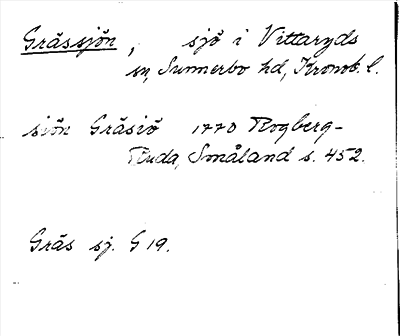 Gråssjön, sjö i Vittaryds
sn, Sunnerbo hd, Kronob. l.
siön Gråsiö 1770 Rogberg-
Ruda, Småland s. 452.
Grås sj. G 19.